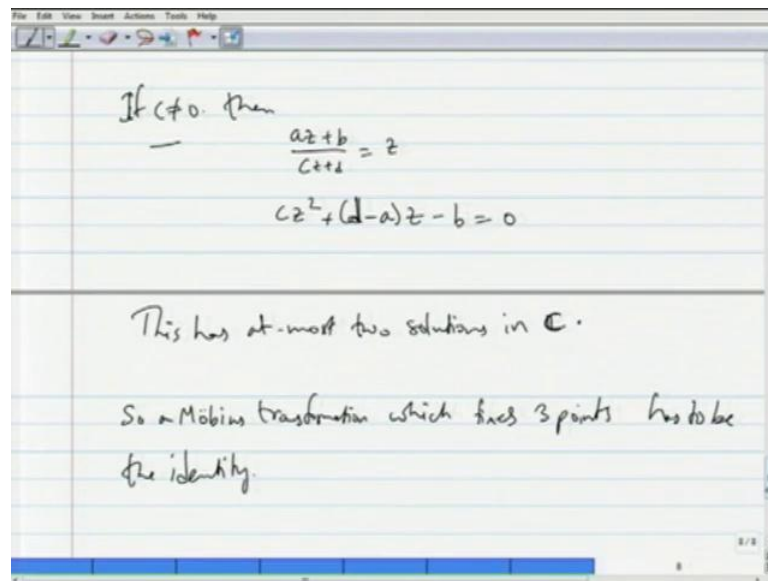 File Edit View Insert Actions Tools Help
If c≠0. then
az+b
cz+d = z
cz²+(d-a)z-b=0
This has at-most two solutions in ℂ.
So a Möbius transformation which fixes 3 points has to be
the identity.
8/8
8